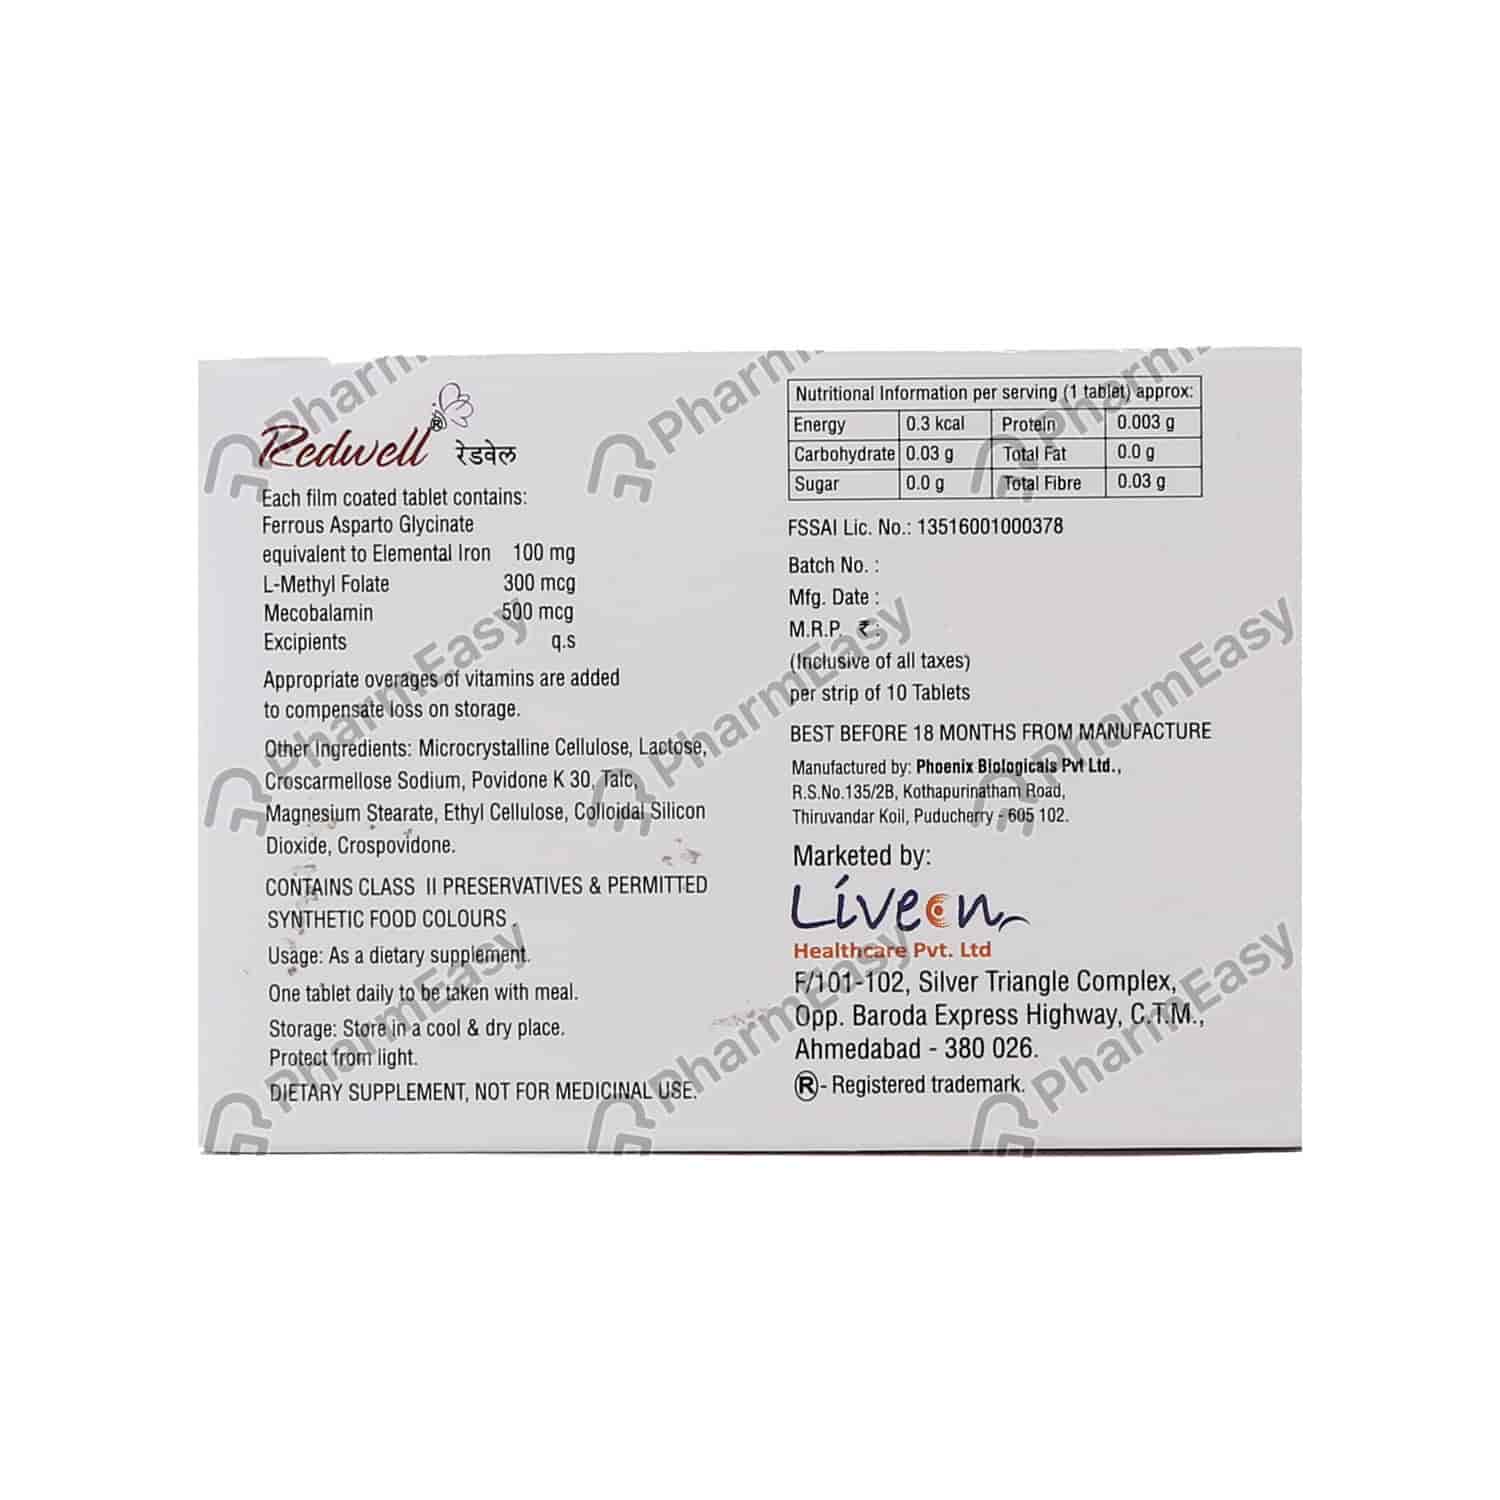 Redwell® रेडवेल
Each film coated tablet contains:
Ferrous Asparto Glycinate
equivalent to Elemental Iron 100 mg
L-Methyl Folate 300 mcg
Mecobalamin 500 mcg
Excipients q.s
Appropriate overages of vitamins are added
to compensate loss on storage.
Other Ingredients: Microcrystalline Cellulose, Lactose,
Croscarmellose Sodium, Povidone K 30, Talc,
Magnesium Stearate, Ethyl Cellulose, Colloidal Silicon
Dioxide, Crospovidone.
CONTAINS CLASS II PRESERVATIVES & PERMITTED
SYNTHETIC FOOD COLOURS .
Usage: As a dietary supplement.
One tablet daily to be taken with meal.
Storage: Store in a cool & dry place.
Protect from light.
DIETARY SUPPLEMENT, NOT FOR MEDICINAL USE.
Nutritional Information per serving (1 tablet) approx:
Energy 0.3 kcal Protein 0.003 g
Carbohydrate 0.03 g Total Fat 0.0 g
Sugar 0.0 g Total Fibre 0.03 g
FSSAI Lic. No.: 13516001000378
Batch No. :
Mfg. Date :
M.R.P. ₹ :
(Inclusive of all taxes)
per strip of 10 Tablets
BEST BEFORE 18 MONTHS FROM MANUFACTURE
Manufactured by: Phoenix Biologicals Pvt Ltd.,
R.S.No.135/2B, Kothapurinatham Road,
Thiruvandar Koil, Puducherry - 605 102.
Marketed by:
Liveon
Healthcare Pvt. Ltd
F/101-102, Silver Triangle Complex,
Opp. Baroda Express Highway, C.T.M.,
Ahmedabad - 380 026.
®- Registered trademark.
PharmEasy
PharmEasy
PharmEasy
PharmEasy
PharmEasy
PharmEasy